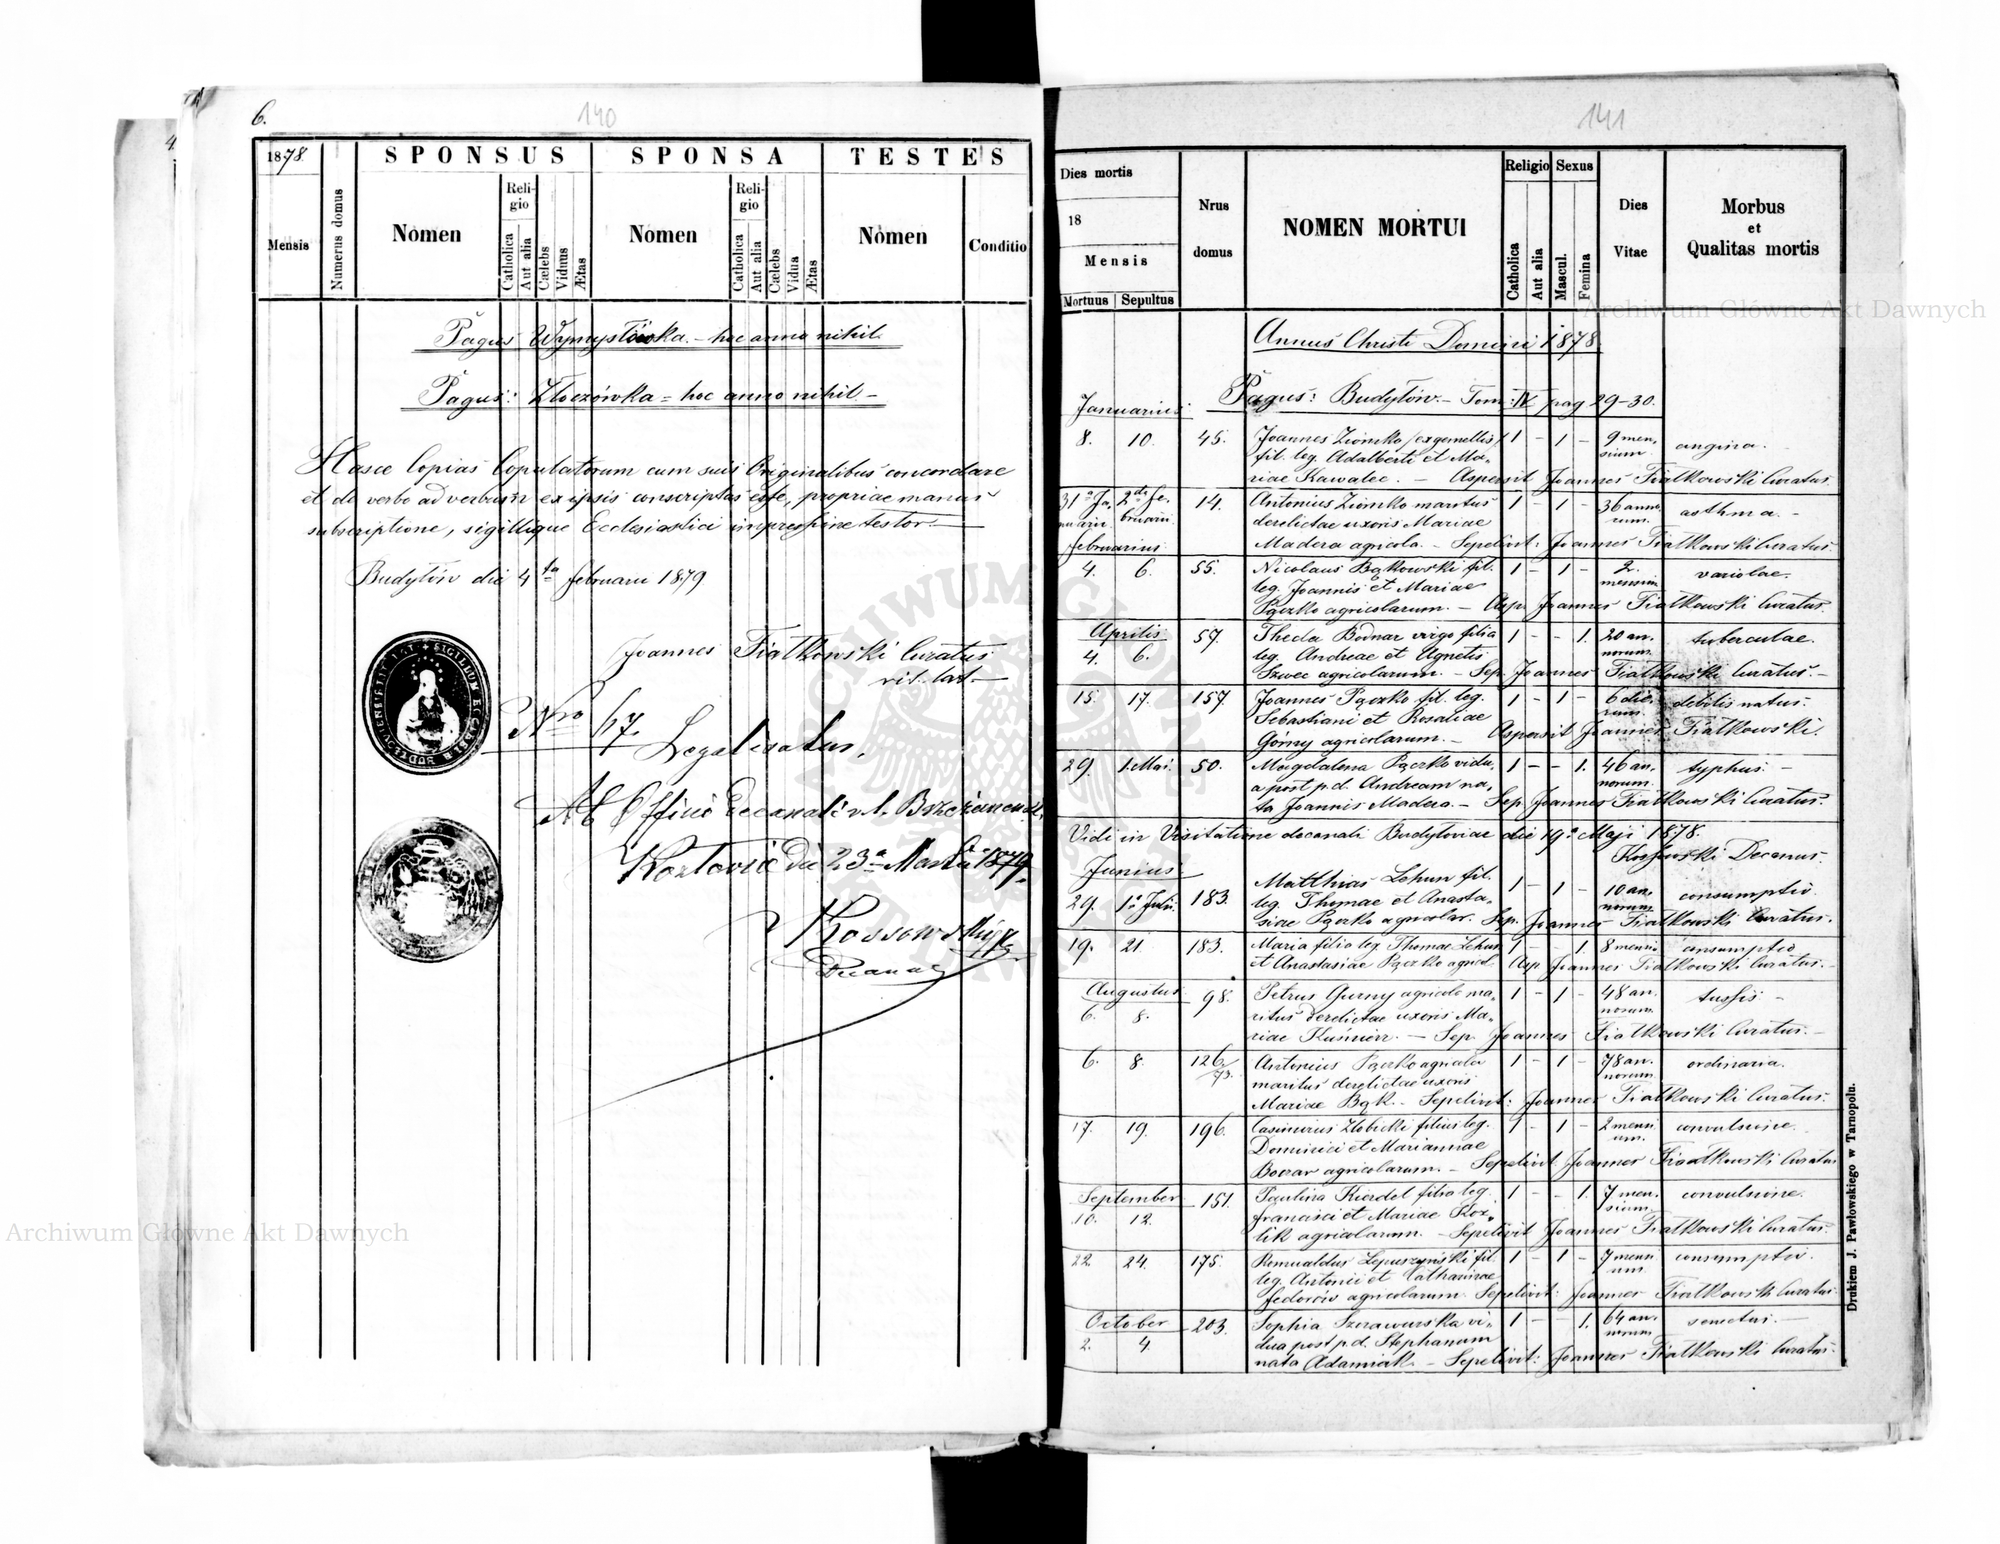 6.
140
1878.
SPONSUS
SPONSA
TESTES
Mensis
Numerus domus
Nomen
Religio
Catholica
Aut alia
Cælebs
Viduus
Ætas
Nomen
Religio
Catholica
Aut alia
Cælebs
Vidua
Ætas
Nomen
Conditio
Pagus Wymysłówka - hoc anno nihil.
Pagus: Złoczówka = hoc anno nihil -
Hasce Copias Copulatorum cum suis Originalibus concordare
et de verbo ad verbum ex ipsis conscriptas esse, propriae manus
subscriptione, sigillique Ecclesiastici impressione testor.
Budyłów die 4ta februarii 1879
Joannes Fiałkowski Curatus
rit. lat.
Nro 67.
Legalisatur.
Ab Officio Decanali r. l. Brzeżanensi,
Kozłoviae die 23a Martii 1879.
Kossowski
Decanus
141
Dies mortis
18
Mensis
Mortuus
Sepultus
Nrus domus
NOMEN MORTUI
Religio
Catholica
Aut alia
Sexus
Mascul.
Femina
Dies Vitae
Morbus
et
Qualitas mortis
Annus Christi Domini 1878.
Januarius
Pagus: Budyłów. - Tom: IV pag 29-30.
8. 10. 45. Joannes Ziomko /ex gemellis/ 1 - 1 - 9 men, angina.
fil. leg. Adalberti et Ma- sium
riae Kawalec. - Aspersit Joannes Fiałkowski Curatus.
31a Ja, 2da fe, 14. Antonius Ziomko maritus 1 - 1 - 36 anno asthma. -
nuarii bruarii derelictae uxoris Mariae rum.
februarius Madera agricola. - Sepelivit: Joannes Fiałkowski Curatus.
4. 6. 55. Nicolaus Bąkowski fil. 1 - 1 - 2 variolae.
leg. Joannis et Mariae mensium
Pączko agricolarum. - Asp. Joannes Fiałkowski Curatus.
Aprilis 57 Thecla Bodnar virgo filia 1 - - 1. 20 an, tuberculae.
4. 6. leg. Andreae et Agnetis norum.
Szwec agricolarum. - Sep. Joannes Fiałkowski Curatus. -
15. 17. 157. Joannes Pączko fil. leg. 1 - 1 - 6 die, debilis natus.
Sebastiani et Rosaliae rum.
Górny agricolarum. - Aspersit Joannes Fiałkowski.
29. 1. Mai. 50. Magdalena Pączko vidu, 1 - - 1. 46 an, typhus. -
a post p. d. Andream na, norum.
ta Joannis Madera. - Sep. Joannes Fiałkowski Curatus.
Vidi in Visitatione decanali Budyłoviae die 19a Maji 1878.
Kossowski Decanus.
Junius
29. 1a Julii. 183. Matthias Lehun fil. 1 - 1 - 10 an, consumptio
leg. Thomae et Anasta- norum
siae Pączko agricolar. Sep. Joannes Fiałkowski Curatus.
19. 21. 183. Maria filia leg. Thomae Lehun 1 - - 1. 8 mensi consumptio
et Anastasiae Pączko agricol. Asp Joannes Fiałkowski Curatus.
Augustus 98. Petrus Gurny agricola ma, 1 - 1 - 48 an. tussis. -
6. 8. ritus derelictae uxoris Ma, norum.
riae Kuśnierz. - Sep. Joannes Fiałkowski Curatus. -
6. 8. 126/73. Antonius Pączko agricola 1 - 1 - 78 an. ordinaria.
maritus derelictae uxoris norum.
Mariae Bąk. - Sepelivit: Joannes Fiałkowski Curatus.
17. 19. 196. Casimirus Złobicki filius leg. 1 - 1 - 2 mensi convulsione.
Dominici et Mariannae um.
Boczar agricolarum. - Sepelivit Joannes Fiałkowski Curatus
September 151. Paulina Kierdel filia leg. 1 - - 1. 7 men. convulsione.
10. 12. francisci et Mariae Koz, sium.
lik agricolarum. - Sepelivit Joannes Fiałkowski Curatus.
22. 24. 175. Romualdus Lopuszyński fil. 1 - 1 - 7 mensi consumptio.
leg. Antonii et Catharinae um.
fedorów agricolarum Sepelivit: Joannes Fiałkowski Curatus.
October 203. Sophia Szerawurska vi, 1 - - 1. 64 an. senectus. -
2. 4. dua post p. d. Stephanum norum
nata Adamiak - Sepelivit: Joannes Fiałkowski Curatus.
Drukiem J. Pawłowskiego w Tarnopolu.
Archiwum Główne Akt Dawnych
Archiwum Główne Akt Dawnych
ARCHIWUM GŁÓWNE AKT DAWNYCH